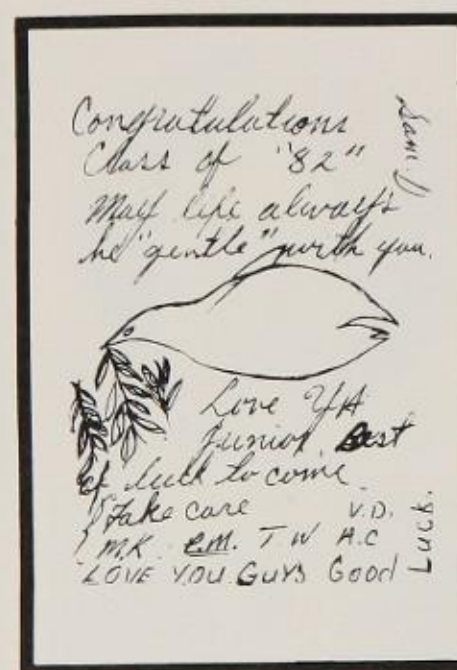 Congratulations
Class of "82"
May life always
be "gentle" with you.
Sam. J
Love YA
Junior. Best
of luck to come
Take care V.D.
M.K. P.M. T W A.C
LOVE YOU GUYS Good Luck.